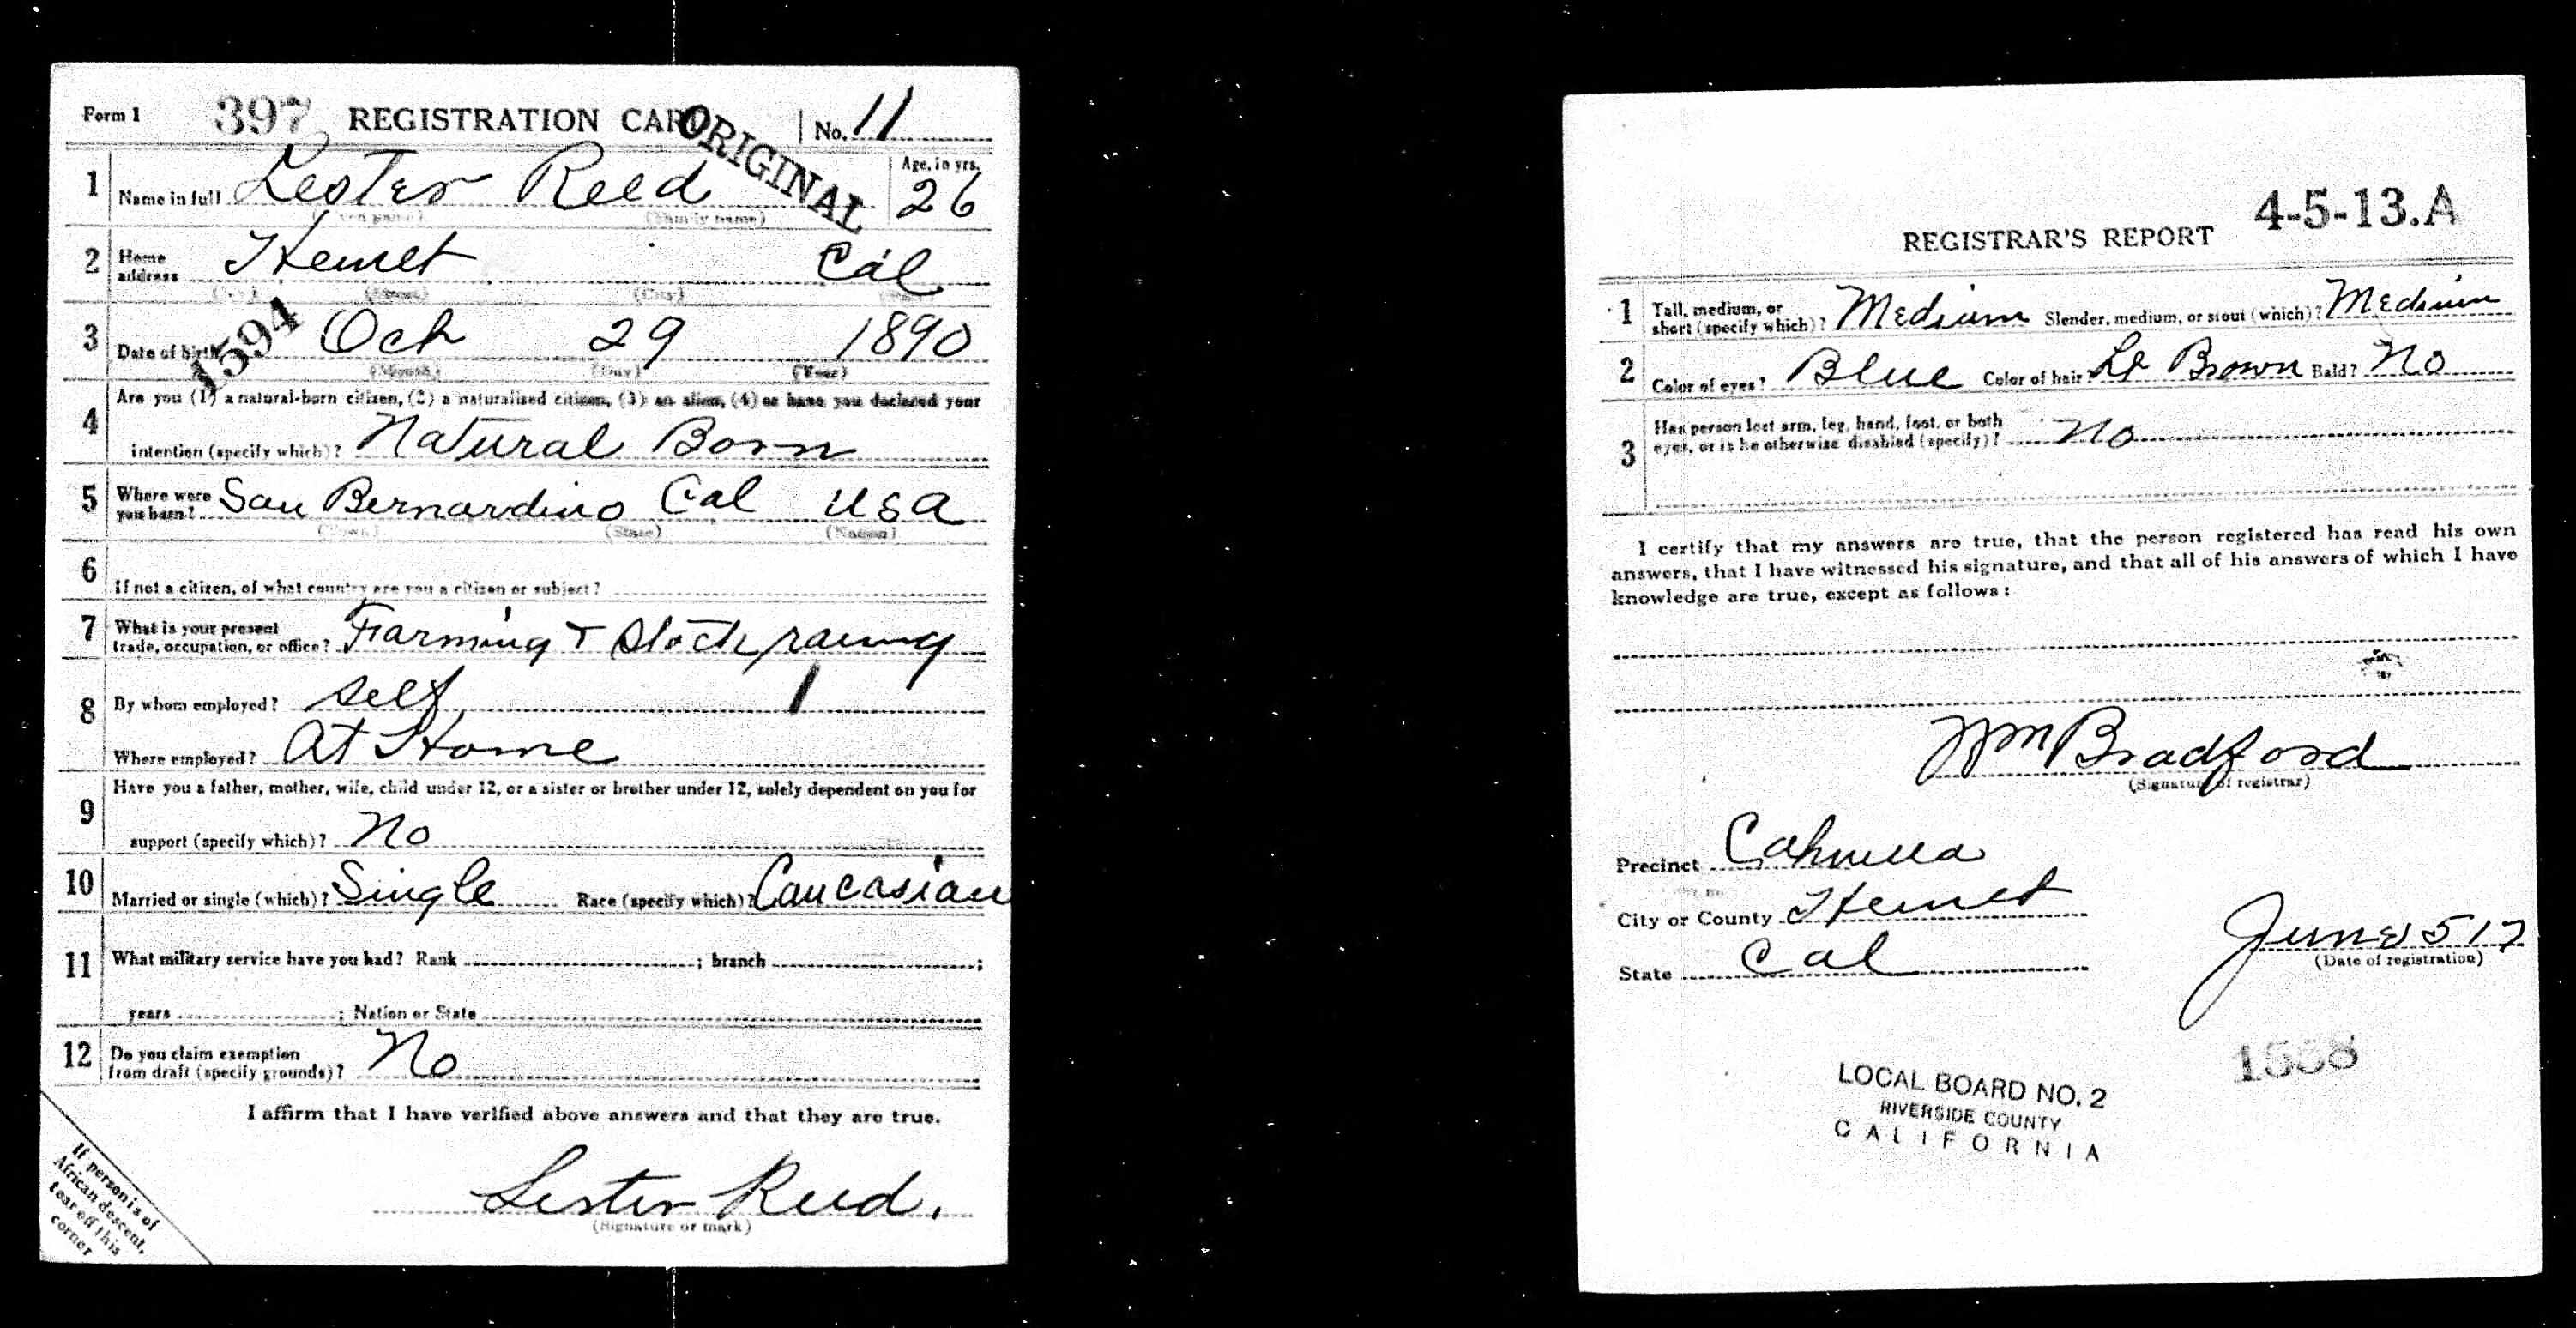 Form 1 397 REGISTRATION CARD ORIGINAL No. 11
1 Name in full Lester Reed Age, in yrs. 26
(Given name) (Family name)
2 Home address Hemet Cal
(No.) (Street) (City) (State)
3 Date of birth Oct 29 1890
1594
(Month) (Day) (Year)
4 Are you (1) a natural-born citizen, (2) a naturalized citizen, (3) an alien, (4) or have you declared your
intention (specify which)? Natural Born
5 Where were you born? San Bernardino Cal USA
(Town) (State) (Nation)
6 If not a citizen, of what country are you a citizen or subject?
7 What is your present trade, occupation, or office? Farming + Stock raising
8 By whom employed? self
Where employed? At Home
9 Have you a father, mother, wife, child under 12, or a sister or brother under 12, solely dependent on you for
support (specify which)? No
10 Married or single (which)? Single Race (specify which)? Caucasian
11 What military service have you had? Rank ; branch ;
years ; Nation or State
12 Do you claim exemption from draft (specify grounds)? No
I affirm that I have verified above answers and that they are true.
Lester Reed.
(Signature or mark)
If person is of
African descent,
tear off this
corner
4-5-13.A
REGISTRAR'S REPORT
1 Tall, medium, or short (specify which)? Medium Slender, medium, or stout (which)? Medium
2 Color of eyes? Blue Color of hair? Lt Brown Bald? No
3 Has person lost arm, leg, hand, foot, or both
eyes, or is he otherwise disabled (specify)? No
I certify that my answers are true, that the person registered has read his own
answers, that I have witnessed his signature, and that all of his answers of which I have
knowledge are true, except as follows:
Wm Bradford
(Signature of registrar)
Precinct Cahuilla
City or County Hemet
State Cal
June 5 17
(Date of registration)
LOCAL BOARD NO. 2
RIVERSIDE COUNTY
CALIFORNIA